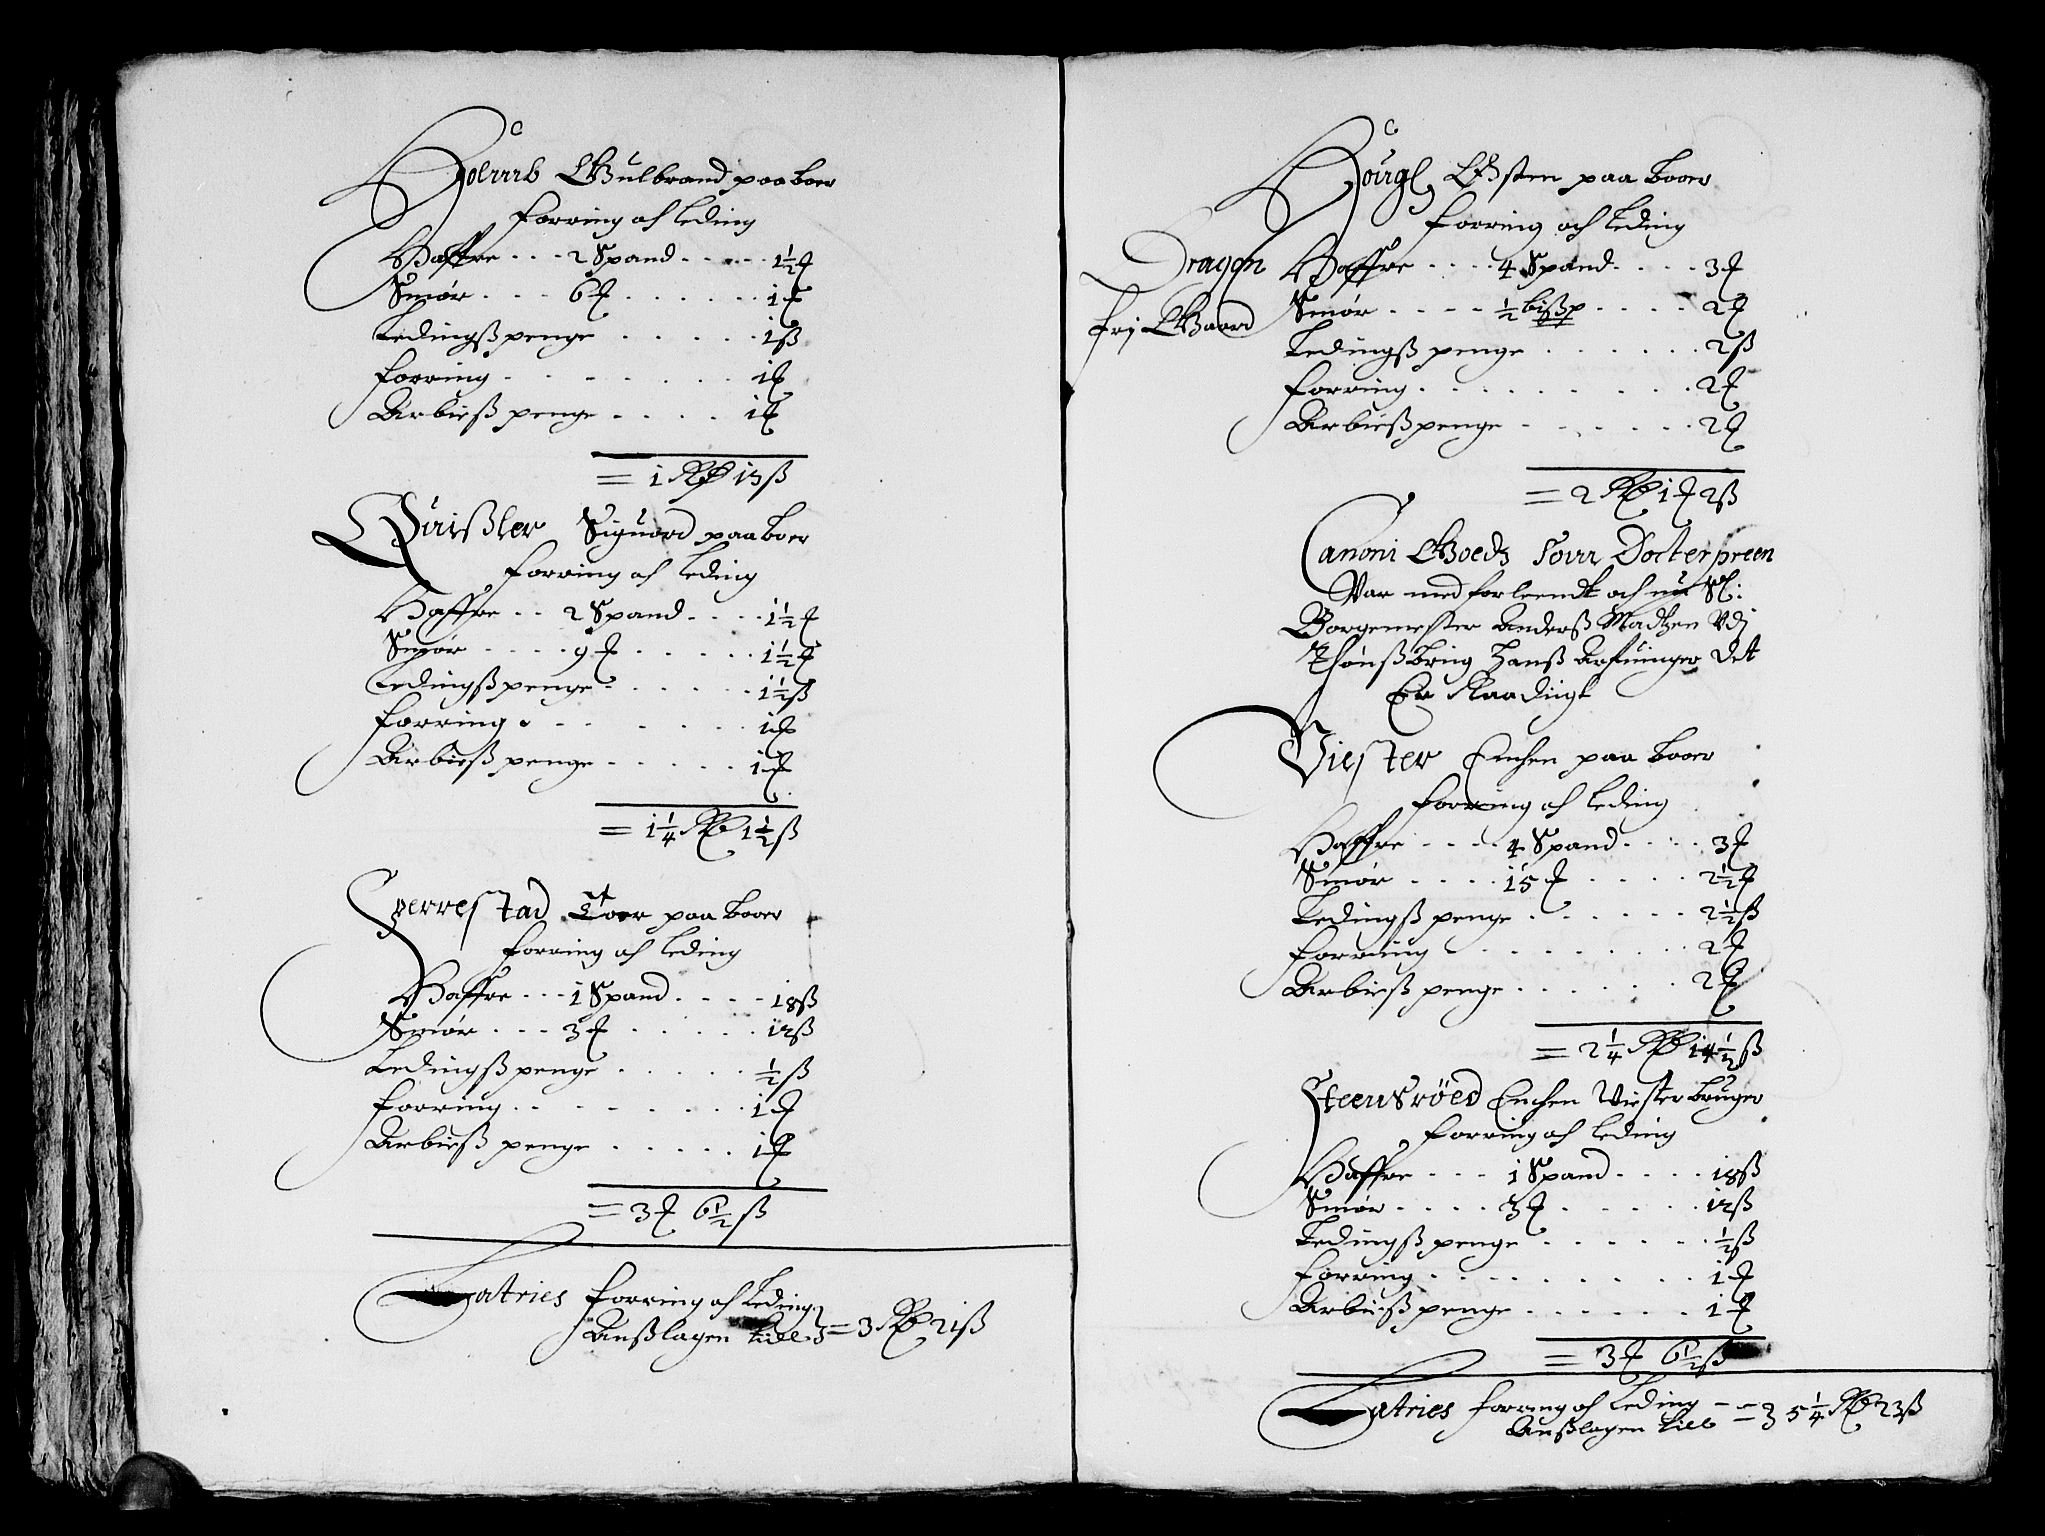 Holmb Gulbrand paa boer
Forring af Leding
Haffre . . . 2 Spand . . . . . 1½ ₰
Smør . . . 6 ₰ . . . . . . 1 ₰
Ledingß penge . . . . . 1 ß
Forring . . . . . . . . 1 ₰
Arbieß penge . . . . 1 ₰
= 1 Rd 13 ß
Quißler Siguord paa boer
Forring af Leding
Haffre . . 2 Spand . . . . 1½ ₰
Smør . . . . 9 ₰ . . . . . . 1½ ₰
Ledingß penge . . . . . . 1½ ß
Forring . . . . . . . 1 ₰
Arbieß penge . . . . . 1 ₰
= 1¼ Rd 1½ ß
Sperrestad Toer paa boer
Forring af Leding
Haffre . . . 1 Spand . . . . 18 ß
Smør . . . 3 ₰ . . . . . . 12 ß
Ledingß penge . . . . . ½ ß
Forring . . . . . . . . 1 ₰
Arbieß penge . . . . . 1 ₰
= 3 ₰ 6½ ß
Latries Forring af Leding
Anßlagen till = 3 Rd 21 ß
Hougl Østen paa boer
Forring och Leding
Dragon Haffre . . . . 4 Spand . . . . 3 ₰
frj Gaard Smør . . . . ½ bißp . . . . 2 ₰
Ledingß penge . . . . . . 2 ß
Forring . . . . . . . . . 2 ₰
Arbieß penge . . . . . . 2 ₰
= 2 Rd 1 ₰ 2 ß
Canoni Goedz Som Docter preen
Var med forleendt och nu Sl:
Borgemester Anderß Madtzen Vdj
Thønßbrig Hanß Arfuinger det
Er Raadigt
Viester Emhen paa boer
Forring af Leding
Haffre . . . . 4 Spand . . . . 3 ₰
Smør . . . . 15 ₰ . . . . 2½ ₰
Ledingß penge . . . . . . 2½ ß
Forring . . . . . . . . 2 ₰
Arbieß penge . . . . . . 2 ₰
= 2¼ Rd 14½ ß
Steensrøed Emhen Viester bruger
Forring af Leding
Haffre . . . 1 Spand . . . . 18 ß
Smør . . . . 3 ₰ . . . . . . 12 ß
Ledingß penge . . . . . . ½ ß
Forring . . . . . . . . . 1 ₰
Arbieß penge . . . . . . 1 ₰
= 3 ₰ 6½ ß
Latries Forring af Leding
Anßlagen till = 5¼ Rd 23 ß